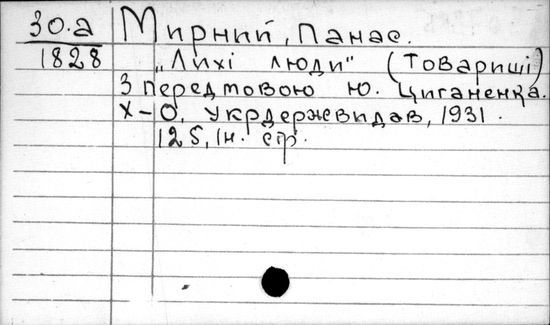 30.а Мирний, Панас.
1828 „Лихі люди" (Товариші)
З передмовою Ю. Циганенка.
Х–О, Укрдержвидав, 1931.
125, Ін. стр.